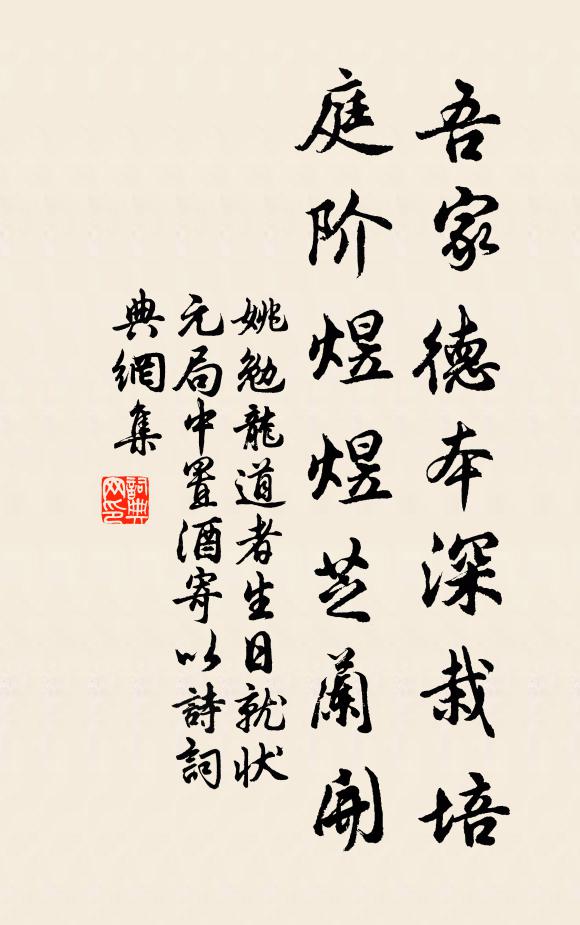 吾家德本深栽培
庭阶煜煜芝蘭開
姚勉龍道者生日就状
元局中置酒寄以詩詞
典網集
詞典
网印